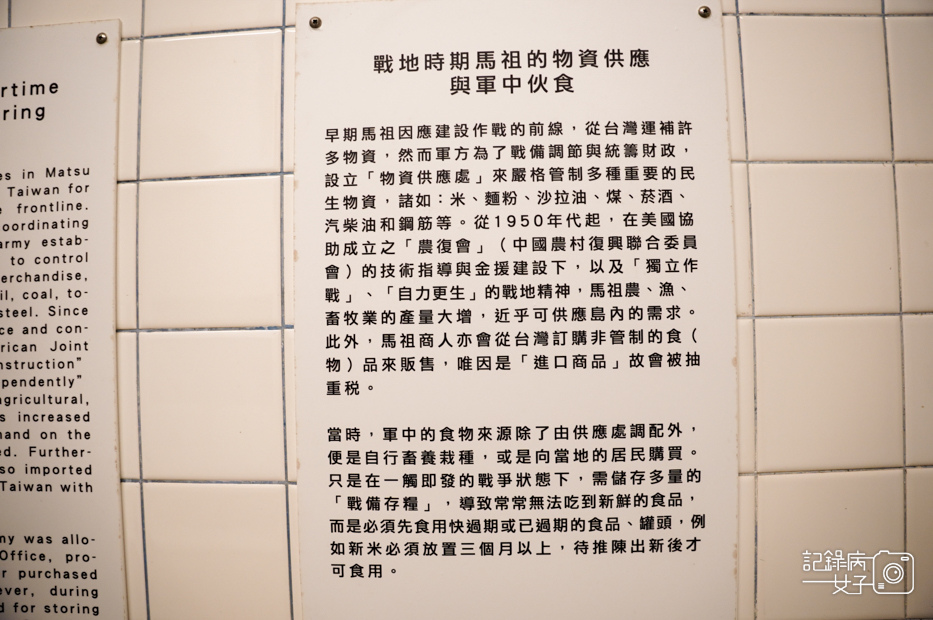 rtime
ring
es in Matsu
Taiwan for
e frontline.
oordinating
army estab-
to control
erchandise,
il, coal, to-
steel. Since
ce and con-
rican Joint
nstruction"
pendently"
agricultural,
s increased
mand on the
ed. Further-
so imported
Taiwan with
my was allo-
Office, pro-
r purchased
ever, during
d for storing
戰地時期馬祖的物資供應
與軍中伙食
早期馬祖因應建設作戰的前線，從台灣運補許
多物資，然而軍方為了戰備調節與統籌財政，
設立「物資供應處」來嚴格管制多種重要的民
生物資，諸如：米、麵粉、沙拉油、煤、菸酒、
汽柴油和鋼筋等。從1950年代起，在美國協
助成立之「農復會」（中國農村復興聯合委員
會）的技術指導與金援建設下，以及「獨立作
戰」、「自力更生」的戰地精神，馬祖農、漁、
畜牧業的產量大增，近乎可供應島內的需求。
此外，馬祖商人亦會從台灣訂購非管制的食（
物）品來販售，唯因是「進口商品」故會被抽
重税。
當時，軍中的食物來源除了由供應處調配外，
便是自行畜養栽種，或是向當地的居民購買。
只是在一觸即發的戰爭狀態下，需儲存多量的
「戰備存糧」，導致常常無法吃到新鮮的食品，
而是必須先食用快過期或已過期的食品、罐頭，例
如新米必須放置三個月以上，待推陳出新後才
可食用。
記錄病
女子